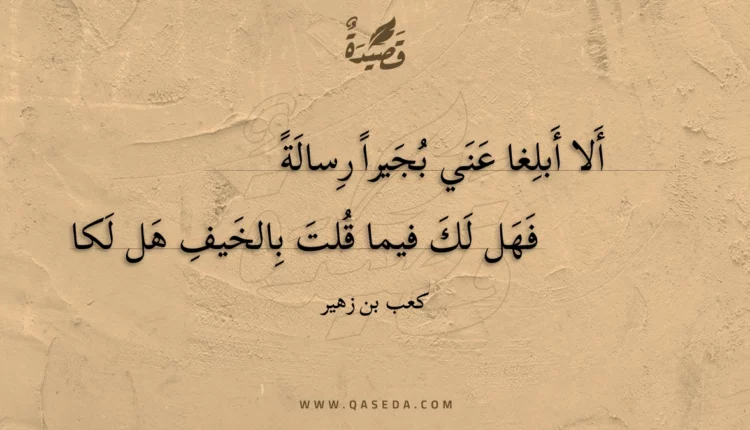 قَصِيدَةٌ
أَلا أَبلِغا عَنَي بُجَيراً رِسالَةً
فَهَل لَكَ فيما قُلتَ بِالخَيفِ هَل لَكا
كعب بن زهير
WWW.QASEDA.COM